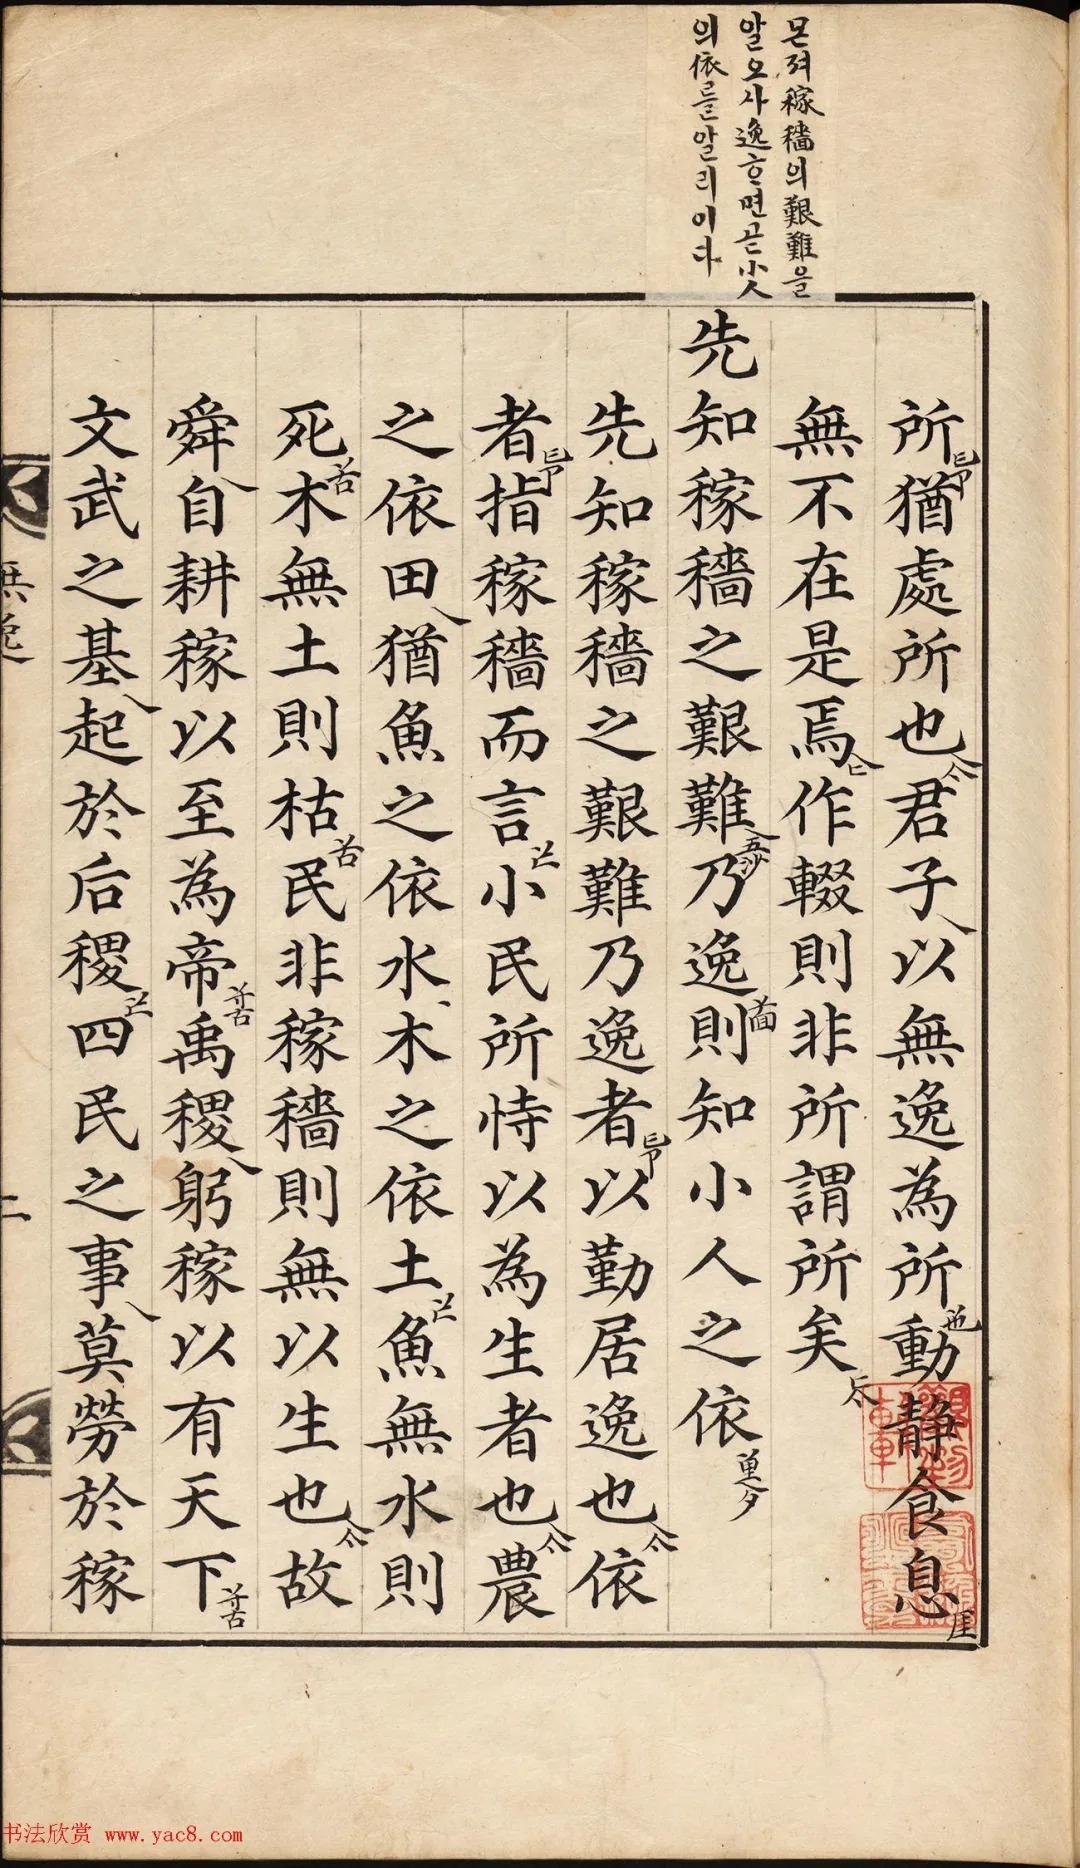 몬져稼穡의艱難을
알오사逸ᄒᆞ면곧小人
의依ᄅᆞᆯ알리이다
所猶處所也君子以無逸為所動静食息
無不在是焉作輟則非所謂所矣
先知稼穡之艱難乃逸則知小人之依
先知稼穡之艱難乃逸者以勤居逸也依
者指稼穡而言小民所恃以為生者也農
之依田猶魚之依水木之依土魚無水則
死木無土則枯民非稼穡則無以生也故
舜自耕稼以至為帝禹稷躬稼以有天下
文武之基起於后稷四民之事莫勞於稼
無逸
二
书法欣赏 www.yac8.com